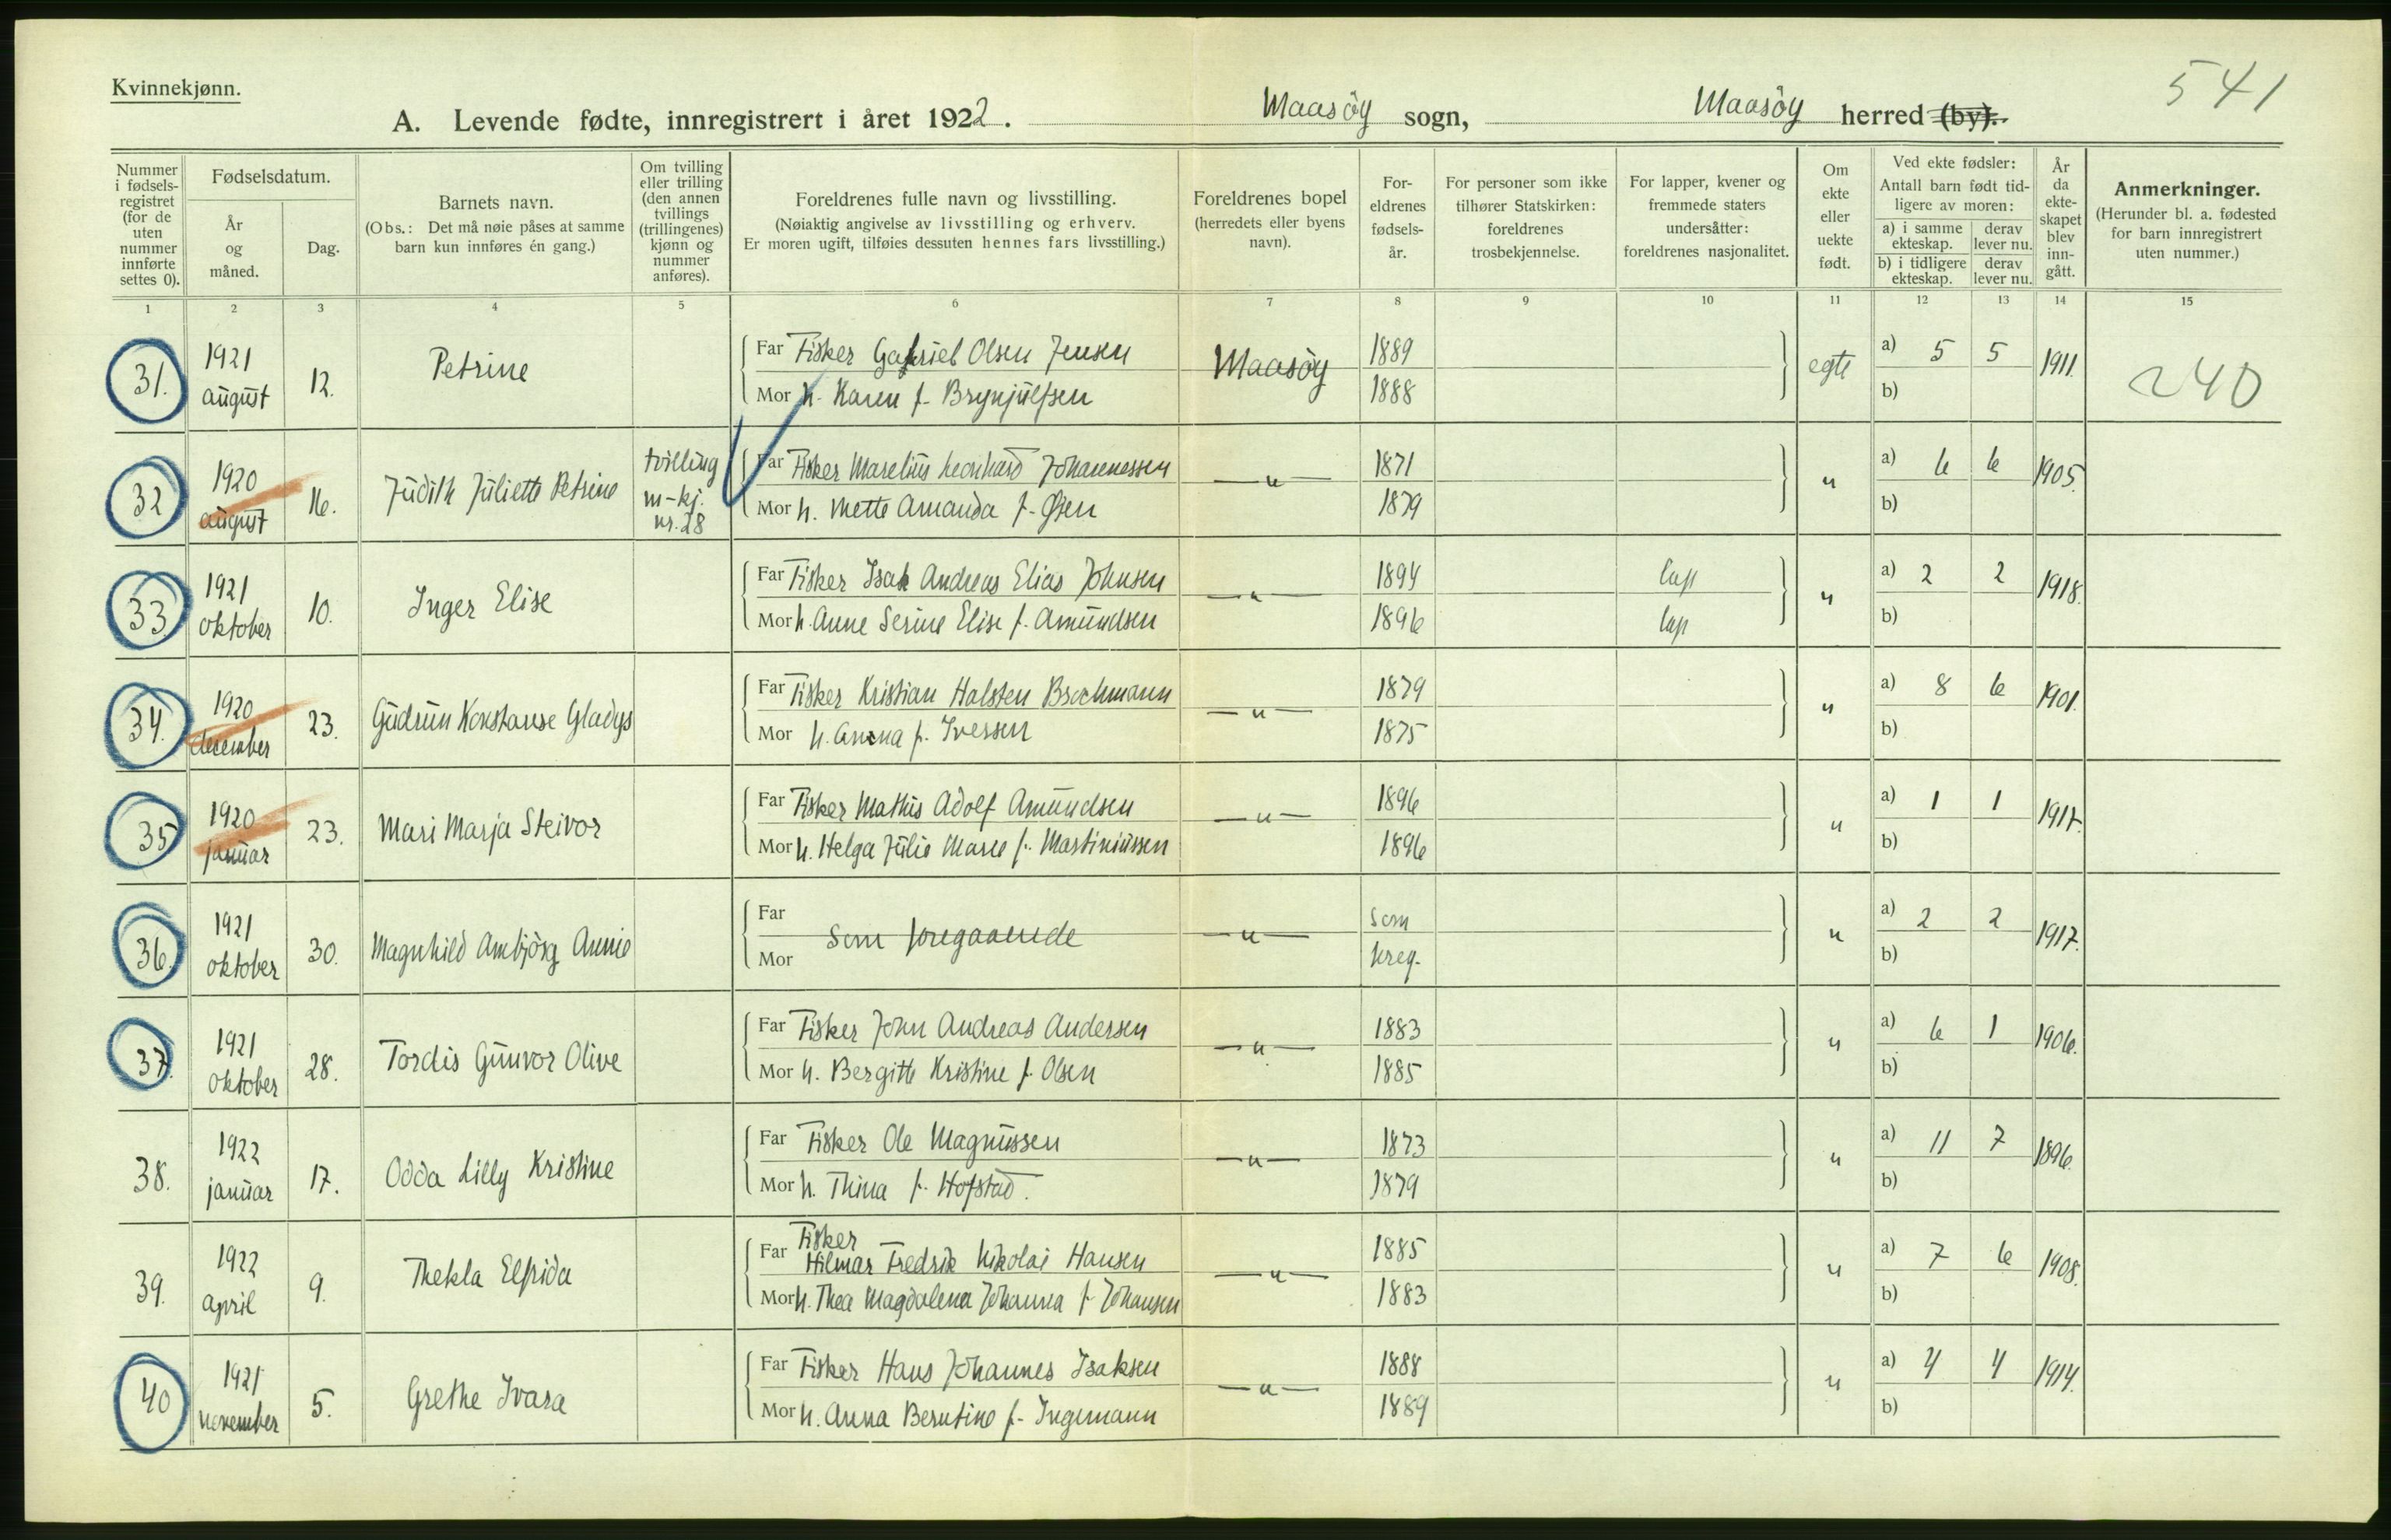 541
Kvinnekjønn.
A. Levende fødte, innregistrert i året 1922. Maasöy sogn, Maasöy herred (by).
Nummer i fødsels-registret (for de uten nummer innførte settes 0).
Fødselsdatum.
År og måned.
Dag.
Barnets navn.
(Obs.: Det må nøie påses at samme barn kun innføres én gang.)
Om tvilling eller trilling (den annen tvillings (trillingenes) kjønn og nummer anføres).
Foreldrenes fulle navn og livsstilling.
(Nøiaktig angivelse av livsstilling og erhverv.
Er moren ugift, tilføies dessuten hennes fars livsstilling.)
Foreldrenes bopel (herredets eller byens navn).
For-eldrenes fødsels-år.
For personer som ikke tilhører Statskirken: foreldrenes trosbekjennelse.
For lapper, kvener og fremmede staters undersåtter: foreldrenes nasjonalitet.
Om ekte eller uekte født.
Ved ekte fødsler:
Antall barn født tid-ligere av moren:
a) i samme ekteskap. derav lever nu.
b) i tidligere ekteskap. derav lever nu.
År da ekte-skapet blev inn-gått.
Anmerkninger.
(Herunder bl. a. fødested for barn innregistrert uten nummer.)
1 2 3 4 5 6 7 8 9 10 11 12 13 14 15
31. 1921 august 12. Petrine Far Fisker Gabriel Olsen Jensen Maasöy 1889 egte a) 5 5 1911. 240
Mor h. Karen f. Brynjulfsen 1888 b)
32 1920 august 16. Judith Juliette Petrine tvilling m-kj. nr. 28 Far Fisker Marelius Leonhard Johannessen —"— 1871 " a) 6 6 1905.
Mor h. Mette Amanda f. Olsen 1879 b)
33 1921 oktober 10. Inger Elise Far Fisker Isak Andreas Elias Johnsen —"— 1894 lap " a) 2 2 1918.
Mor h. Anne Serine Elise f. Amundsen 1896 lap b)
34. 1920 december 23. Gudrun Konstanse Gladys Far Fisker Kristian Halsten Brochmann —"— 1879 " a) 8 6 1901.
Mor h. Anna f. Iversen 1875 b)
35 1920 januar 23. Mari Marja Steivor Far Fisker Mathis Adolf Amundsen —"— 1896 " a) 1 1 1917.
Mor h. Helga Julie Marie f. Martiniussen 1896 b)
36. 1921 oktober 30. Magnhild Ambjörg Annie Far Mor Som foregaaende —"— som foreg. " a) 2 2 1917.
b)
37. 1921 oktober 28. Tordis Gunvor Olive Far Fisker John Andreas Andersen —"— 1883 " a) 6 1 1906.
Mor h. Bergitte Kristine f. Olsen 1885 b)
38. 1922 januar 17. Odda Lilly Kristine Far Fisker Ole Magnussen —"— 1873 " a) 11 7 1896.
Mor h. Thina f. Hofstad. 1879 b)
39. 1922 april 9. Thekla Elfrida Far Fisker Hilmar Fredrik Nikolai Hansen —"— 1885 " a) 7 6 1908.
Mor h. Thea Magdalena Johanna f. Johansen 1883 b)
40 1921 november 5. Grethe Ivara Far Fisker Hans Johannes Isaksen —"— 1888 " a) 4 4 1914.
Mor h. Anna Berntine f. Ingemann 1889 b)